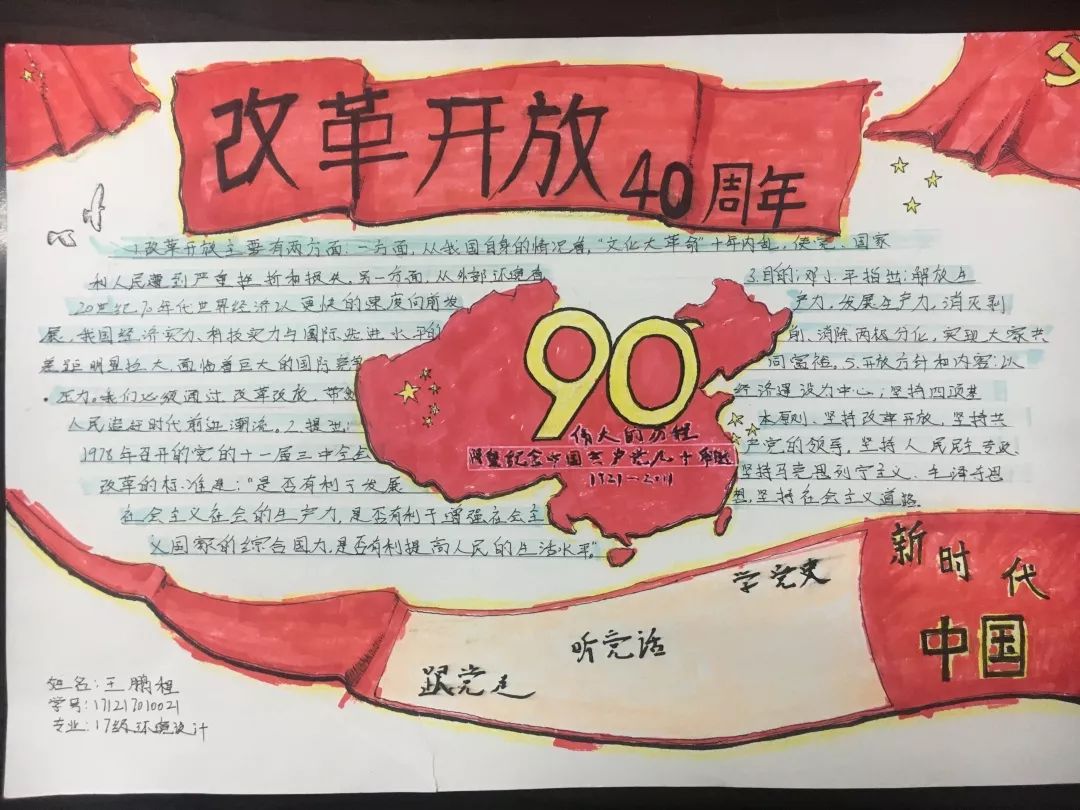 改革开放40周年
1.改革开放主要有两方面:一方面,从我国自身的情况看,"文化大革命"十年内乱,使党、国家
和人民遭到严重挫折和损失。另一方面,从外部环境看
20世纪70年代世界经济以更快的速度向前发
展,我国经济实力、科技实力与国际先进水平的
差距明显拉大,面临着巨大的国际竞争
压力。我们必须通过改革改放,带
人民追赶时代前进潮流。2.提出:
1978年召开的党的十一届三中全会
改革的标准是:"是否有利于发展
社会主义社会的生产力,是否有利于增强社会主
义国家的综合国力,是否有利提高人民的生活水平。"
3.目的:邓小平指出:解放生
产力,发展生产力,消灭剥
削,消除两极分化,实现大家共
同富裕。5.开放方针和内容:以
经济建设为中心;坚持四项基
本原则、坚持改革开放,坚持共
产党的领导,坚持人民民主专政、
坚持马克思列宁主义、毛泽东思
想,坚持在社会主义道路。
90
伟大的历程
隆重纪念中国共产党九十年
1921-2011
学党史
听党话
跟党走
新时代
中国
姓名:王鹏程
学号:171217010021
专业:17级环境设计